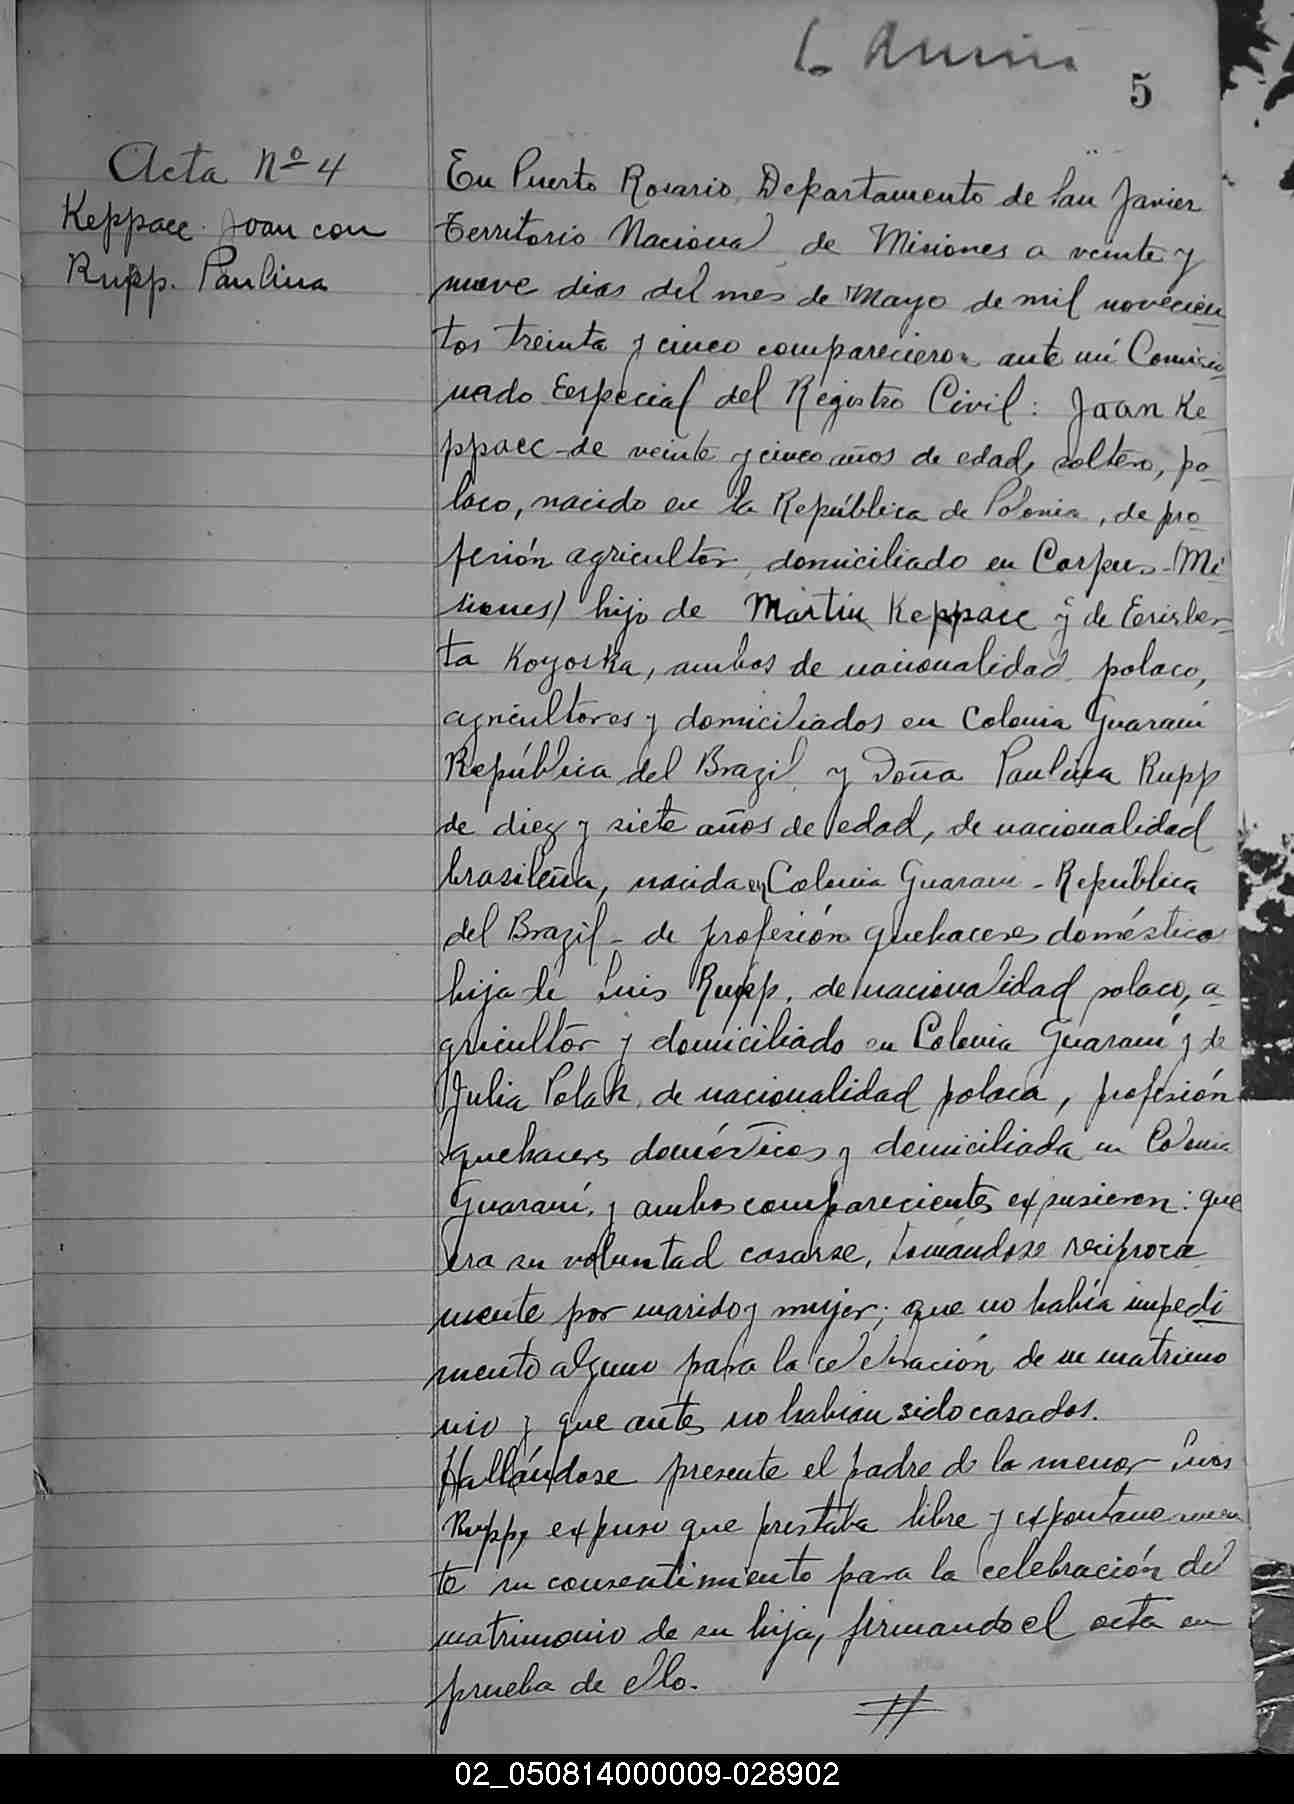 5
Acta Nº 4
Keppacc. Joan con
Rupp. Paulina
En Puerto Rosario, Departamento de San Javier
Territorio Nacional de Misiones a veinte y
nueve dias del mes de Mayo de mil novecien
tos treinta y cinco comparecieron ante mi Comisio
nado Eespecial del Registro Civil: Joan Ke
ppacc - de veinte y cinco años de edad, soltero, po
laco, nacido en la República de Polonia, de pro
fesión agricultor, domiciliado en Corpus - (Mi
siones) hijo de Martin Keppacc y de
ta Koyoska, ambos de nacionalidad polaco,
agricultores y domiciliados en Colonia Guarani
República del Brazil, y Doña Paulina Rupp
de diez y siete años de edad, de nacionalidad
brasileña, nacida en Colonia Guarani - República
del Brazil - de profesión quehaceres doméstico
hija de Luis Rupp, de nacionalidad polaco, a
gricultor y domiciliado en Colonia Guaraní y de
Julia Polak, de nacionalidad polaca, profesión
quehaceres domésticos y domiciliada en Colonia
Guaraní, y ambos comparecientes expusieron: que
era su voluntad casarse, tomándose reciproca
mente por marido y mujer; que no había impedi
mento alguno para la celebración de su matrimo
nio y que antes no habian sido casados.
Hallándose presente el padre de la menor Luis
Rupp, expuso que prestaba libre y expontaneamen
te su consentimiento para la celebración del
matrimonio de su hija, firmando el acta en
prueba de ello.
02_050814000009-028902